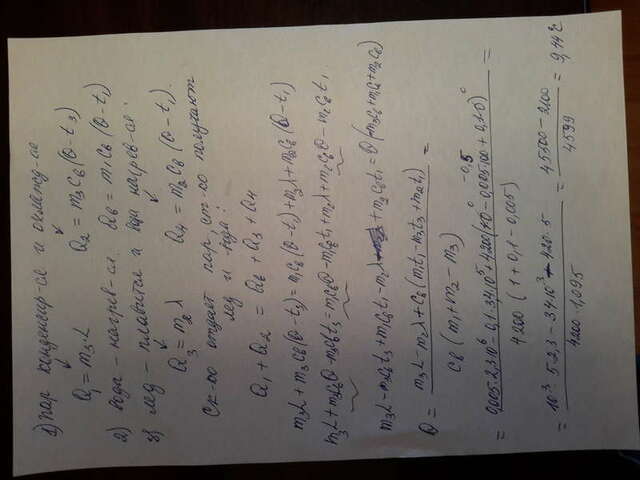 1) пар конденсир-ся и охлажд-ся
Q₁ = m₃L    Q₂ = m₃cв(Θ-t₃)
2) вода - нагрев-ся Qв = m₁cв(Θ-t₁)
3) лёд - плавится и вода нагрев-ся:
Q₃ = m₂λ    Q₄ = m₂cв(Θ-t₁).
Ск-ко отдает пар, ст-ко получают
лёд и вода:
Q₁ + Q₂ = Qв + Q₃ + Q₄
m₃L + m₃cв(Θ-t₃) = m₁cв(Θ-t₁) + m₂λ + m₂cв(Θ-t₁)
m₃L + m₃cвΘ - m₃cвt₃ = m₁cвΘ - m₁cвt₁ + m₂λ + m₂cвΘ - m₂cвt₁
m₃L - m₃cвt₃ + m₁cвt₁ - m₂λ + m₂cвt₁ = Θ(-m₃cв + m₁cв + m₂cв)
Θ = m₃L - m₂λ + cв(m₁t₁ - m₃t₃ + m₂t₁) / cв(m₁ + m₂ - m₃) =
= 0,005·2,3·10⁶ - 0,1·3,4·10⁵ + 4200(1·0 - 0,005·100 + 0,1·0) / 4200(1 + 0,1 - 0,005) =
= 10³·5·2,3 - 34·10³ - 420·5 / 4200·1,095 = 45500 - 2100 / 4599 = 9,44°C